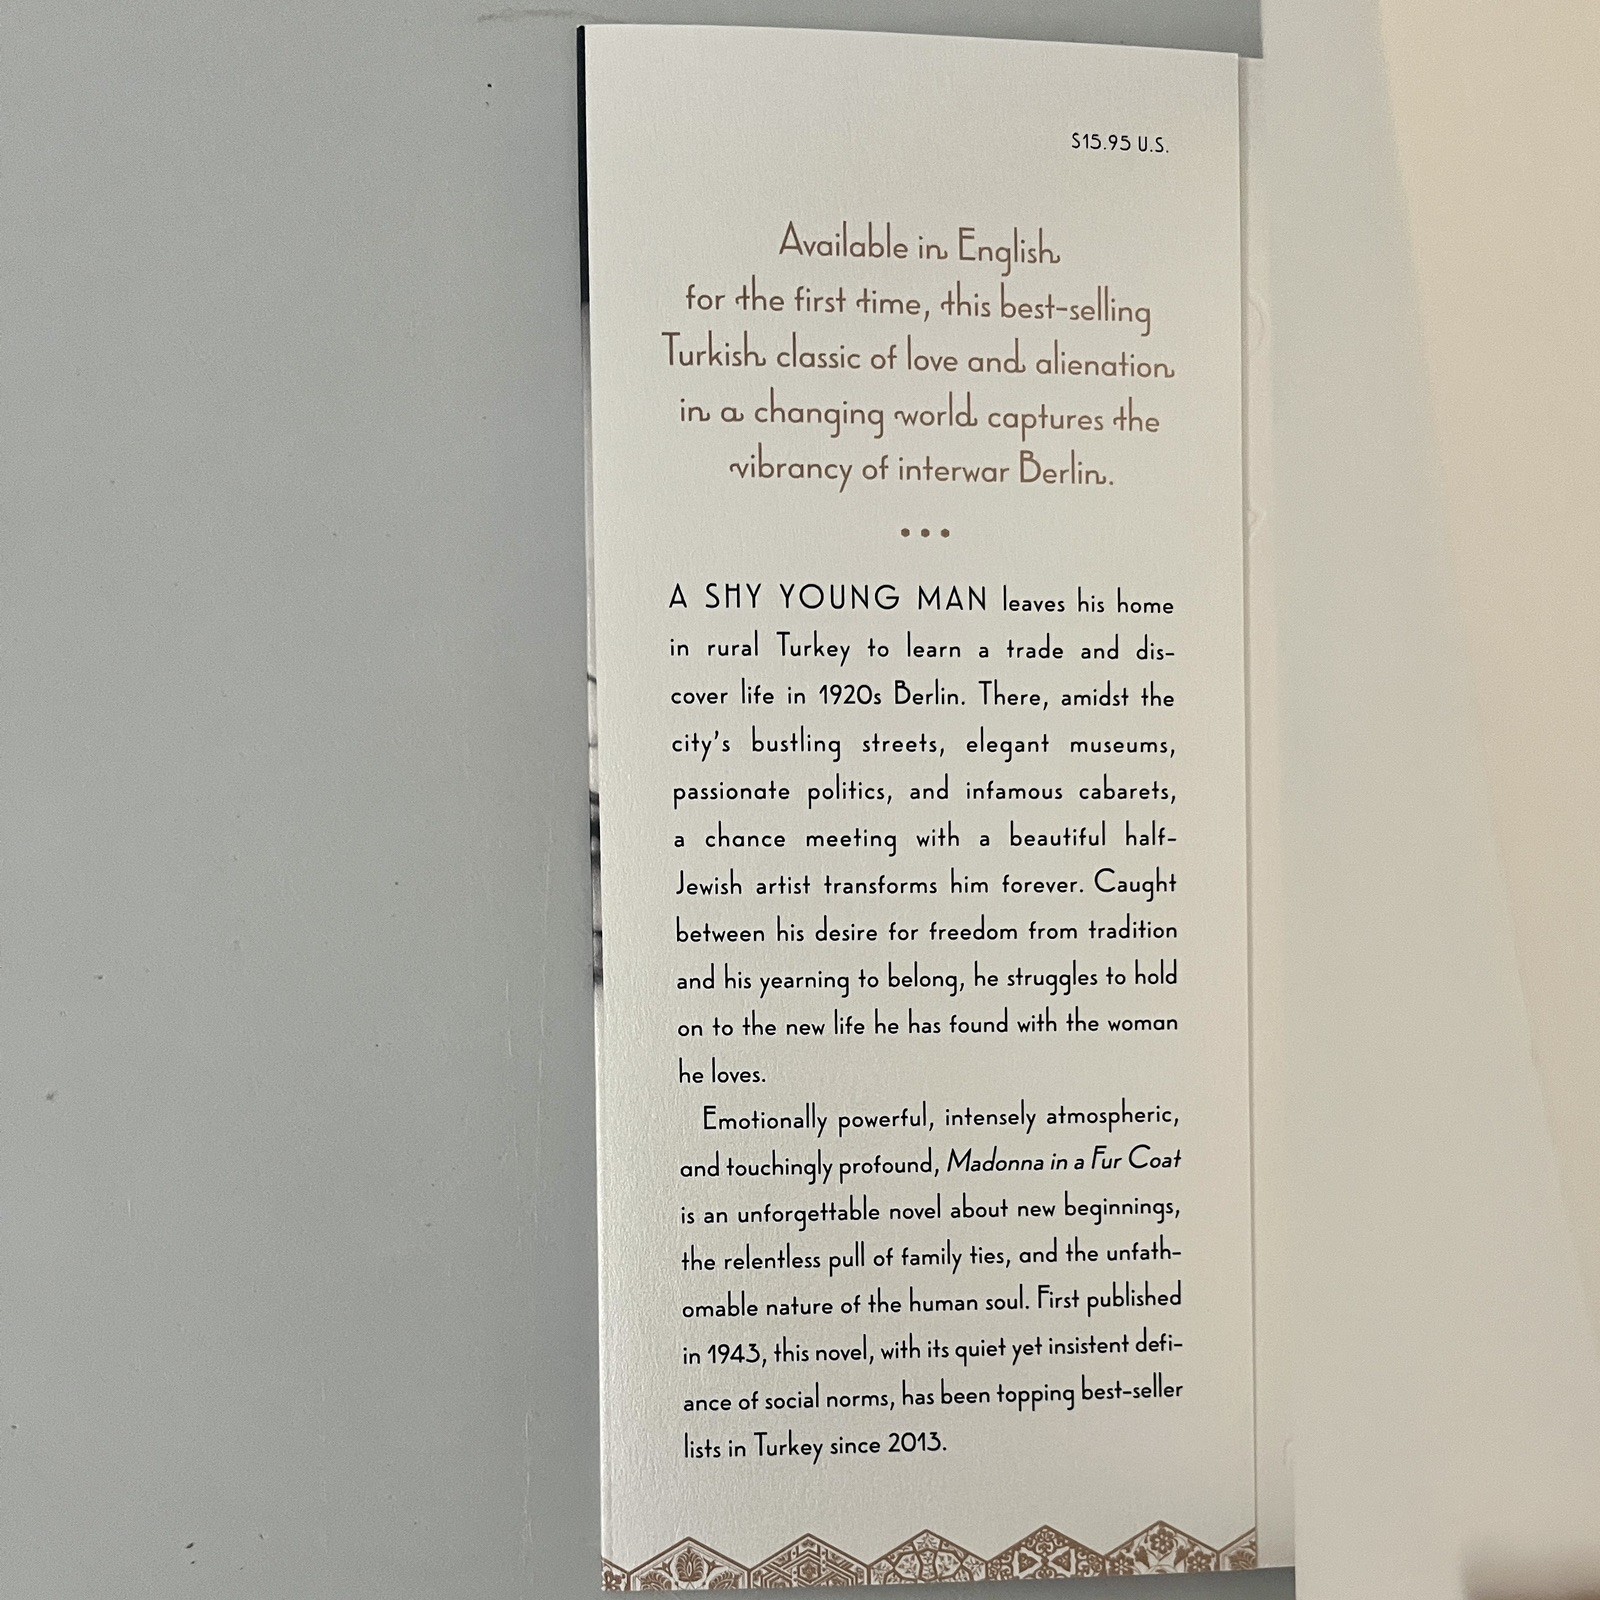 $15.95 U.S.
Available in English
for the first time, this best-selling
Turkish classic of love and alienation
in a changing world captures the
vibrancy of interwar Berlin.
•••
A SHY YOUNG MAN leaves his home
in rural Turkey to learn a trade and dis-
cover life in 1920s Berlin. There, amidst the
city's bustling streets, elegant museums,
passionate politics, and infamous cabarets,
a chance meeting with a beautiful half-
Jewish artist transforms him forever. Caught
between his desire for freedom from tradition
and his yearning to belong, he struggles to hold
on to the new life he has found with the woman
he loves.
Emotionally powerful, intensely atmospheric,
and touchingly profound, Madonna in a Fur Coat
is an unforgettable novel about new beginnings,
the relentless pull of family ties, and the unfath-
omable nature of the human soul. First published
in 1943, this novel, with its quiet yet insistent defi-
ance of social norms, has been topping best-seller
lists in Turkey since 2013.